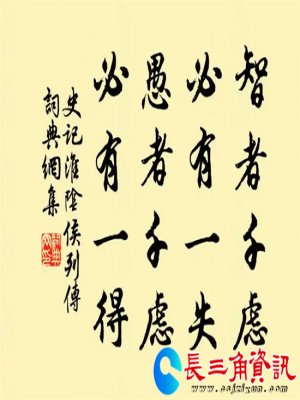 智者千虑
必有一失
愚者千虑
必有一得
史记淮陰侯列傳
詞典網集
長三角資訊